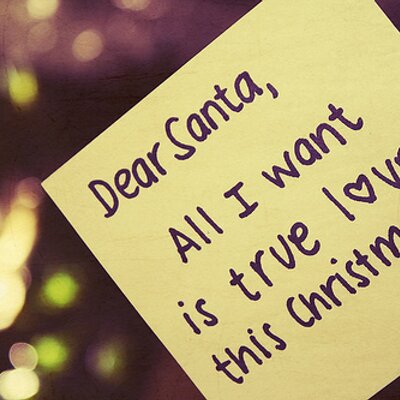 Dear Santa,
All I want
is true l♥v
this Christm